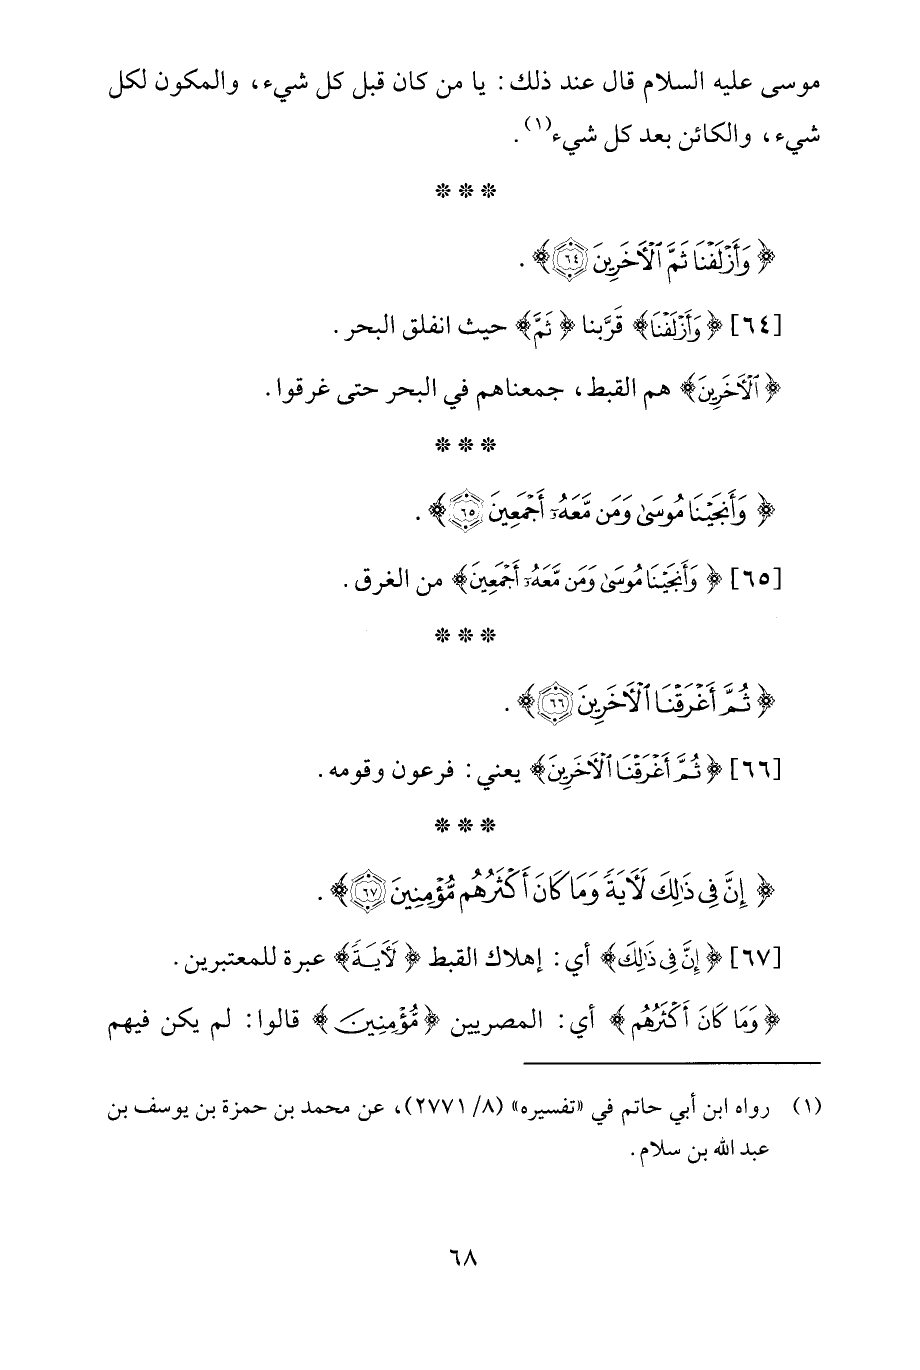 موسى عليه السلام قال عند ذلك: يا من كان قبل كل شيء، والمكون لكل
شيء، والكائن بعد كل شيء(١).
* * *
﴿وَأَزْلَفْنَا ثَمَّ ٱلْأَخَرِينَ ٦٤﴾.
[٦٤] ﴿وَأَزْلَفْنَا﴾ قَرَّبنا ﴿ثَمَّ﴾ حيث انفلق البحر.
﴿ٱلْأَخَرِينَ﴾ هم القبط، جمعناهم في البحر حتى غرقوا.
* * *
﴿وَأَنجَيْنَا مُوسَىٰ وَمَن مَّعَهُۥٓ أَجْمَعِينَ ٦٥﴾.
[٦٥] ﴿وَأَنجَيْنَا مُوسَىٰ وَمَن مَّعَهُۥٓ أَجْمَعِينَ﴾ من الغرق.
* * *
﴿ثُمَّ أَغْرَقْنَا ٱلْأَخَرِينَ ٦٦﴾.
[٦٦] ﴿ثُمَّ أَغْرَقْنَا ٱلْأَخَرِينَ﴾ يعني: فرعون وقومه.
* * *
﴿إِنَّ فِى ذَٰلِكَ لَأَيَةً وَمَا كَانَ أَكْثَرُهُم مُّؤْمِنِينَ ٦٧﴾.
[٦٧] ﴿إِنَّ فِى ذَٰلِكَ﴾ أي: إهلاك القبط ﴿لَأَيَةً﴾ عبرة للمعتبرين.
﴿وَمَا كَانَ أَكْثَرُهُم﴾ أي: المصريين ﴿مُّؤْمِنِينَ﴾ قالوا: لم يكن فيهم
(١) رواه ابن أبي حاتم في «تفسيره» (٨/ ٢٧٧١)، عن محمد بن حمزة بن يوسف بن
عبد الله بن سلام.
٦٨